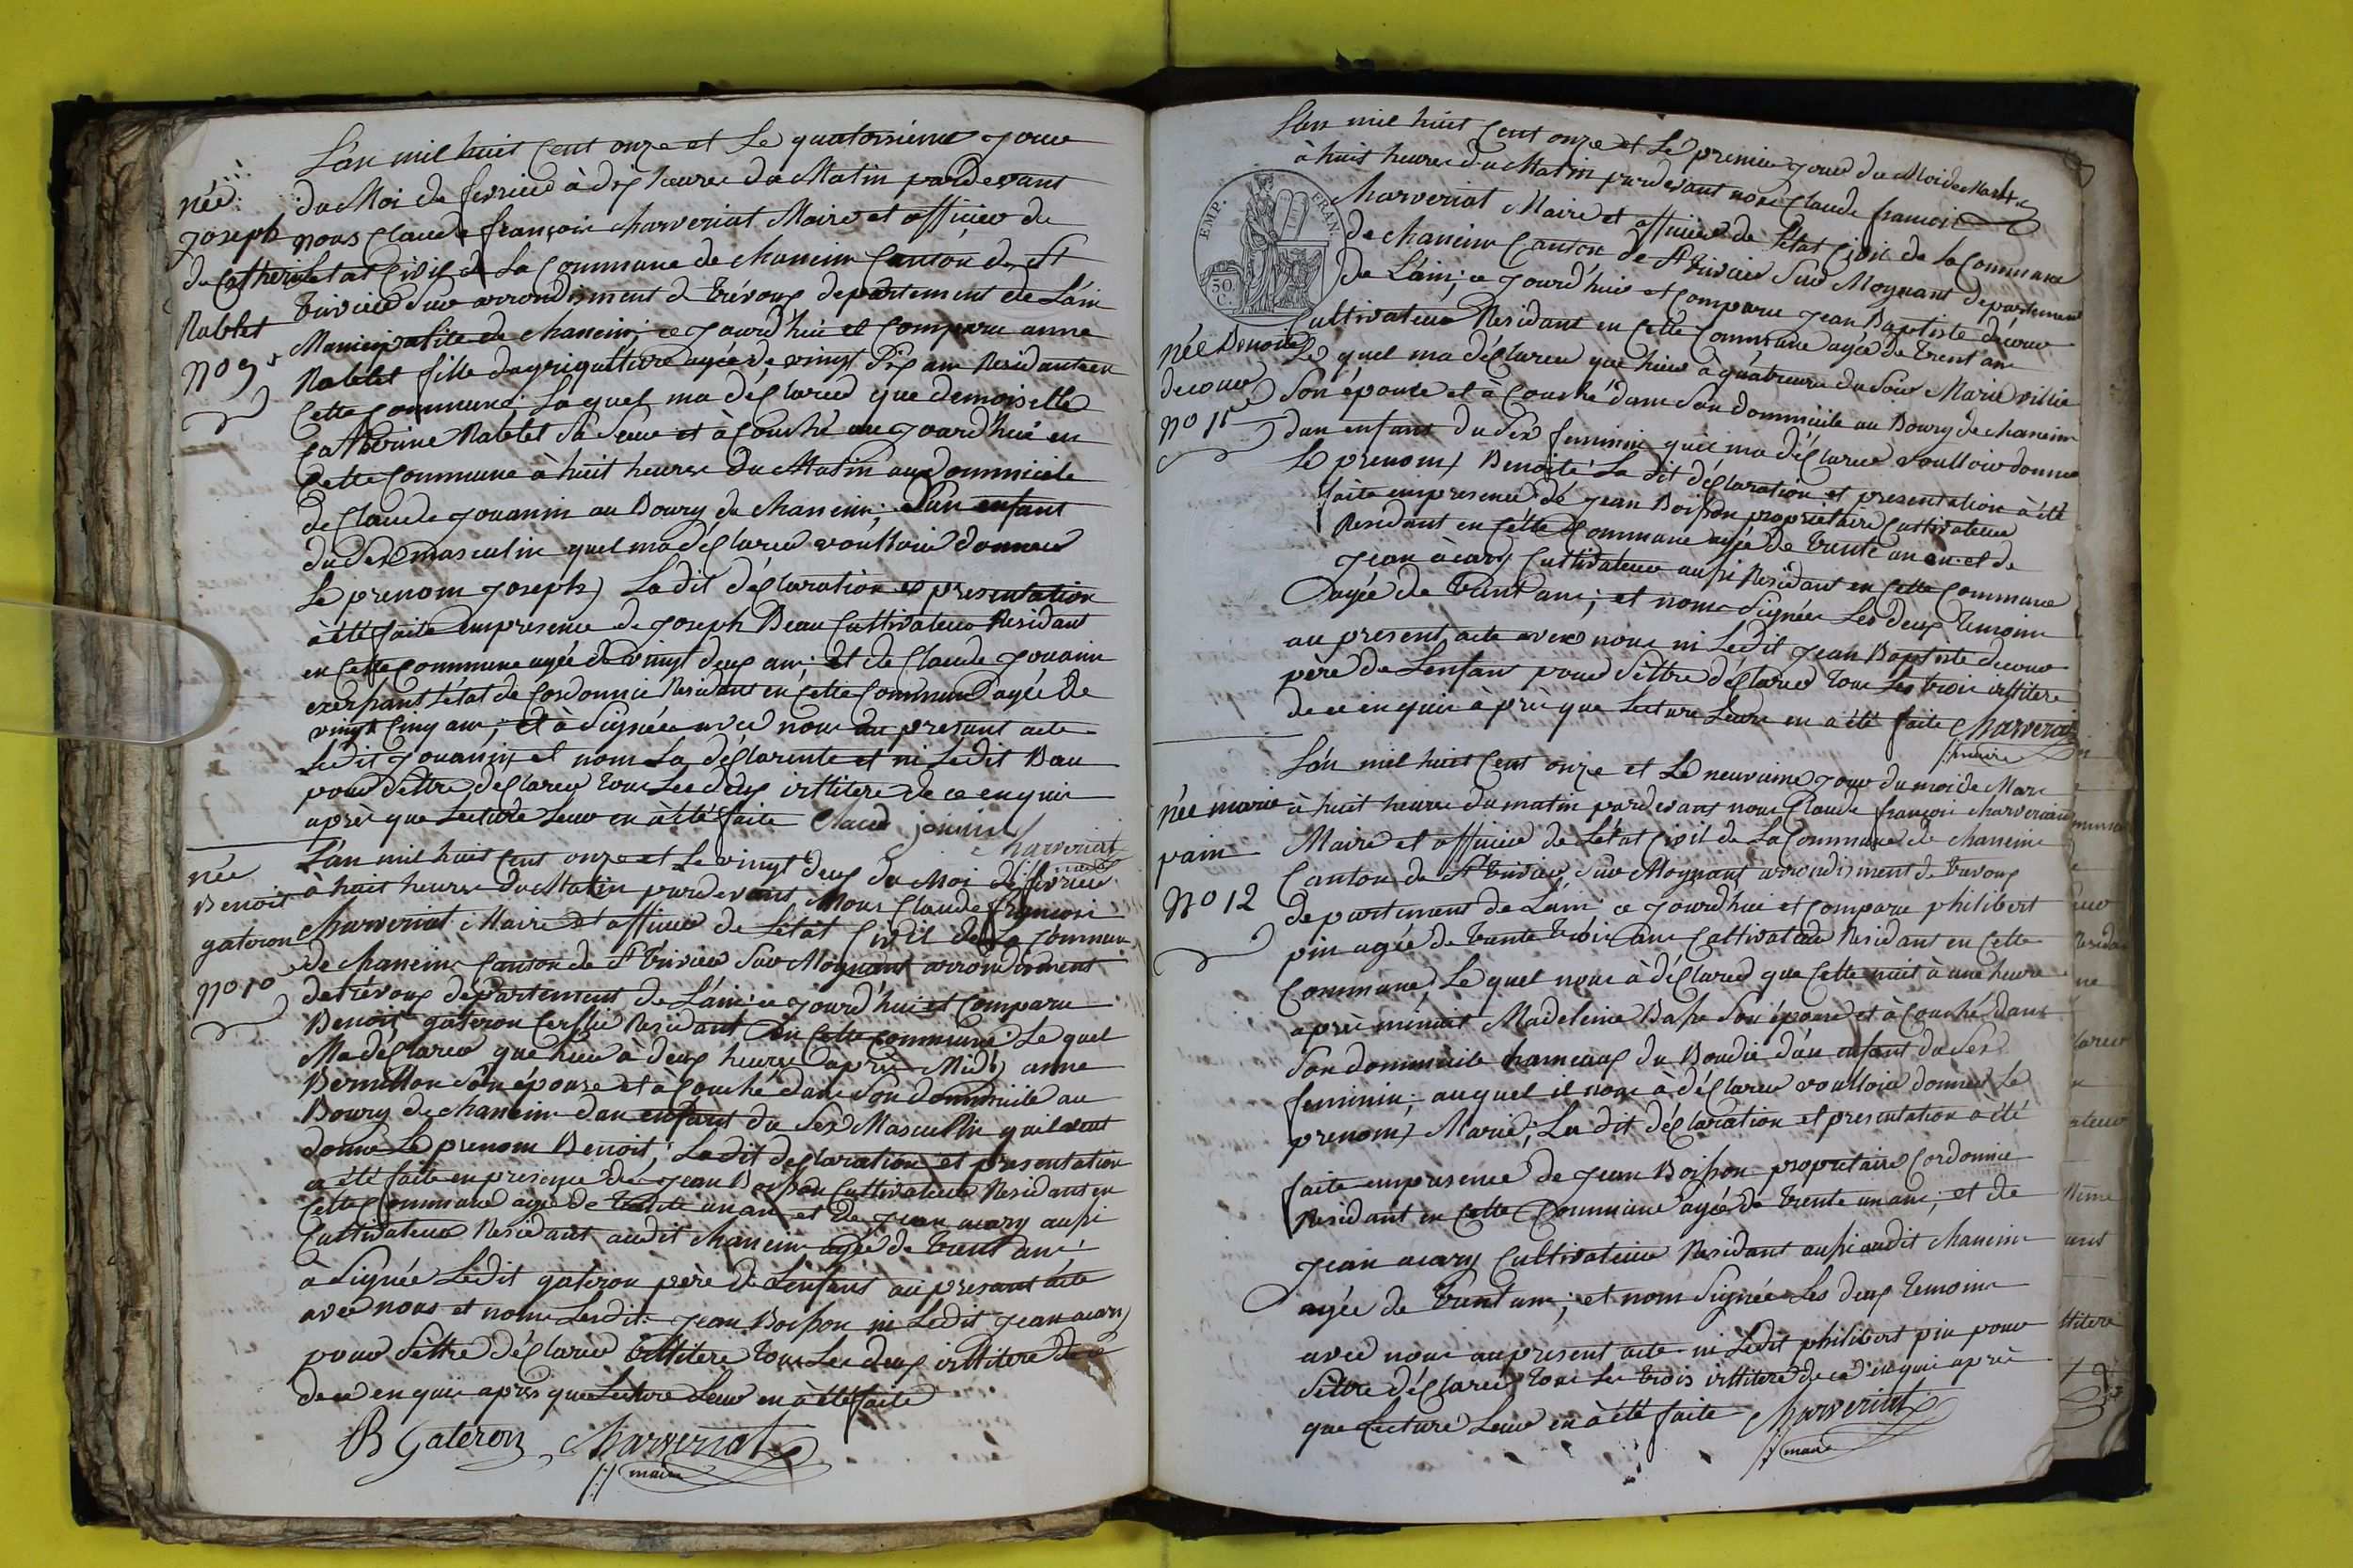 L'an mil huit Cent onze et Le quatorsieme Jour
du Moi de fevrier à dix heures du Matin pardevant
nous Claude françois charveriat Maire et officier de
Letat Civil de La Commune de chaneins Canton de St
trivier Sur arrondisment de trévoux departement de L'ain
Municipalité de chaneins; ce Jourd'hui et Comparu anne
Nablet fille dagriqulture agée de vingt Six ans Residante en
Cette Commune; La quel ma déClarer que demoiselle
Catherine Nablet Sa Seur et à Couché au Jourdhui en
Cette Commune à huit heures du Matin au dommicile
de Claude Jouanin au Bourg de chaneins; d'un enfant
du Sex masculin quel ma déClarer voulloir donner
Le prenom Joseph, La dit déClaration et presentation
à été faite empresence de Joseph Beau Cultivateur Residant
en Cette Commune agée de vingt deux ans; et de Claude Jouanin
exerssant L'état de Cordonnié Residant en Cette Commune agée de
vingt Cinq ans; et à Signée avec nous au presant acte
Ledit Jouanin et nom La déClarente et ni Ledit Bau
pour Settre déClarer tous Les deux illitere de ce enquis
après que Lecture Leur en à été faite Claude jouanin
Charveriat
maire
née
Joseph
de Catherine
Nablet
No 9
L'an mil huit Cent onze et Le vingt deux du Moi de fevrier
à huit heures du Matin pardevant Nous Claude françois
charveriat Maire et officier de Letat Civil de La Commune
de chaneins Canton de St trivier Sur Mognant arrondisment
de trévoux département de L'ain; ce Jourd'hui et Comparu
Benoit gateron Residant en Cette Commune Le quel
Ma déClarer que hier à deux heures après Midi anne
Bernillon Son épouse et à Couché dans Son dommicile au
Bourg de chaneins dan enfant du Sex Masculin
donné Le prenom Benoit; La dit déClaration et presentation
a été faite en presence de Jean Boisson Cultivateur Residant en
Cette Commune agée de trente un an et de Jean acary aussi
Cultivateur Residant audit chaneins agée de trent ans
à Signée Ledit gateron père de L'enfant au presant acte
avec nous et nom Lesdit Jean Boisson ni Ledit Jean acary
pour Settre déClarer illitere tous Les deux illitere de ce
de ce en quis après que Lecture Leur en à été faite
B Gateron Charveriat
maire
née
Benoit
gateron
No 10
L'an mil huit Cent onze et Le premier Jour du Moi de Mars
à huit heures du Matin pardevant nous Claude francois
charveriat Maire et officier de L'état Civil de La Commune
de chaneins Canton de St trivier Sur Mognant departement
de L'ain; ce Jourd'hui et Comparu Jean Baptiste decour
Cultivateur Residant en Cette Commune agée de trent ans
Le quel ma déClarer que hier à quatreure du Soir Marie villié
Son épouse et à Couché dans Son dommicile au Bourg de chaneins
dan enfant du Sex feminin quil ma déClarer voulloir donner
Le prenom, Benoite La dit déClaration et presentation à été
faite empresence de Jean Boisson propriétaire Cultivateur
Residant en Cette Commune agée de trente un an et de
Jean acary Cultivateur aussi Residant en Cette Commune
agée de trent ans; et nome Signée Les deux temoins
au present acte avec nous ni Ledit Jean Baptiste decour
père de L'enfant pour Settre déClarer tous Les trois illitere
de ce enquis après que Lecture Leur en a été faite Charveriat
maire
EMP. FRAN.
50 C.
née Benoite
decour
No 11
L'an mil huit Cent onze et Le neuvieme Jour du moi de Mars
à huit heures du matin pardevant nous Claude françois charveriat
Maire et officier de L'état Civil de La Commune de chaneins
Canton de St trivier Sur Mognant arrondisment de trevoux
departement de L'ain; ce Jourd'hui et Comparu philibert
pin agée de trente trois ans Cultivateur Residant en Cette
Commune, Le quel nous à déClarer que Cette nuit à une heure
après minuit Madeleine Basse Son épouse et à Couché dans
Son dommicile hameaux du Boudié d'un enfant du Sex
feminin; auquel il nous à déClarer voulloir donner Le
prenom, Marie; La dit déClaration et presentation a été
faite empresence de Jean Boisson propriétaire Cordonnié
Residant en Cette Commune agée de trente un ans; et de
Jean acary Cultivateur Residant aussi audit chaneins
agée de trent ans; et nom Signée Les deux temoins
avec nous au present acte ni Ledit philibert pin pour
Settre déClarer tous Les trois illitere de ce enquis après
que Lecture Leur en à été faite Charveriat
maire
née marie
pain
No 12